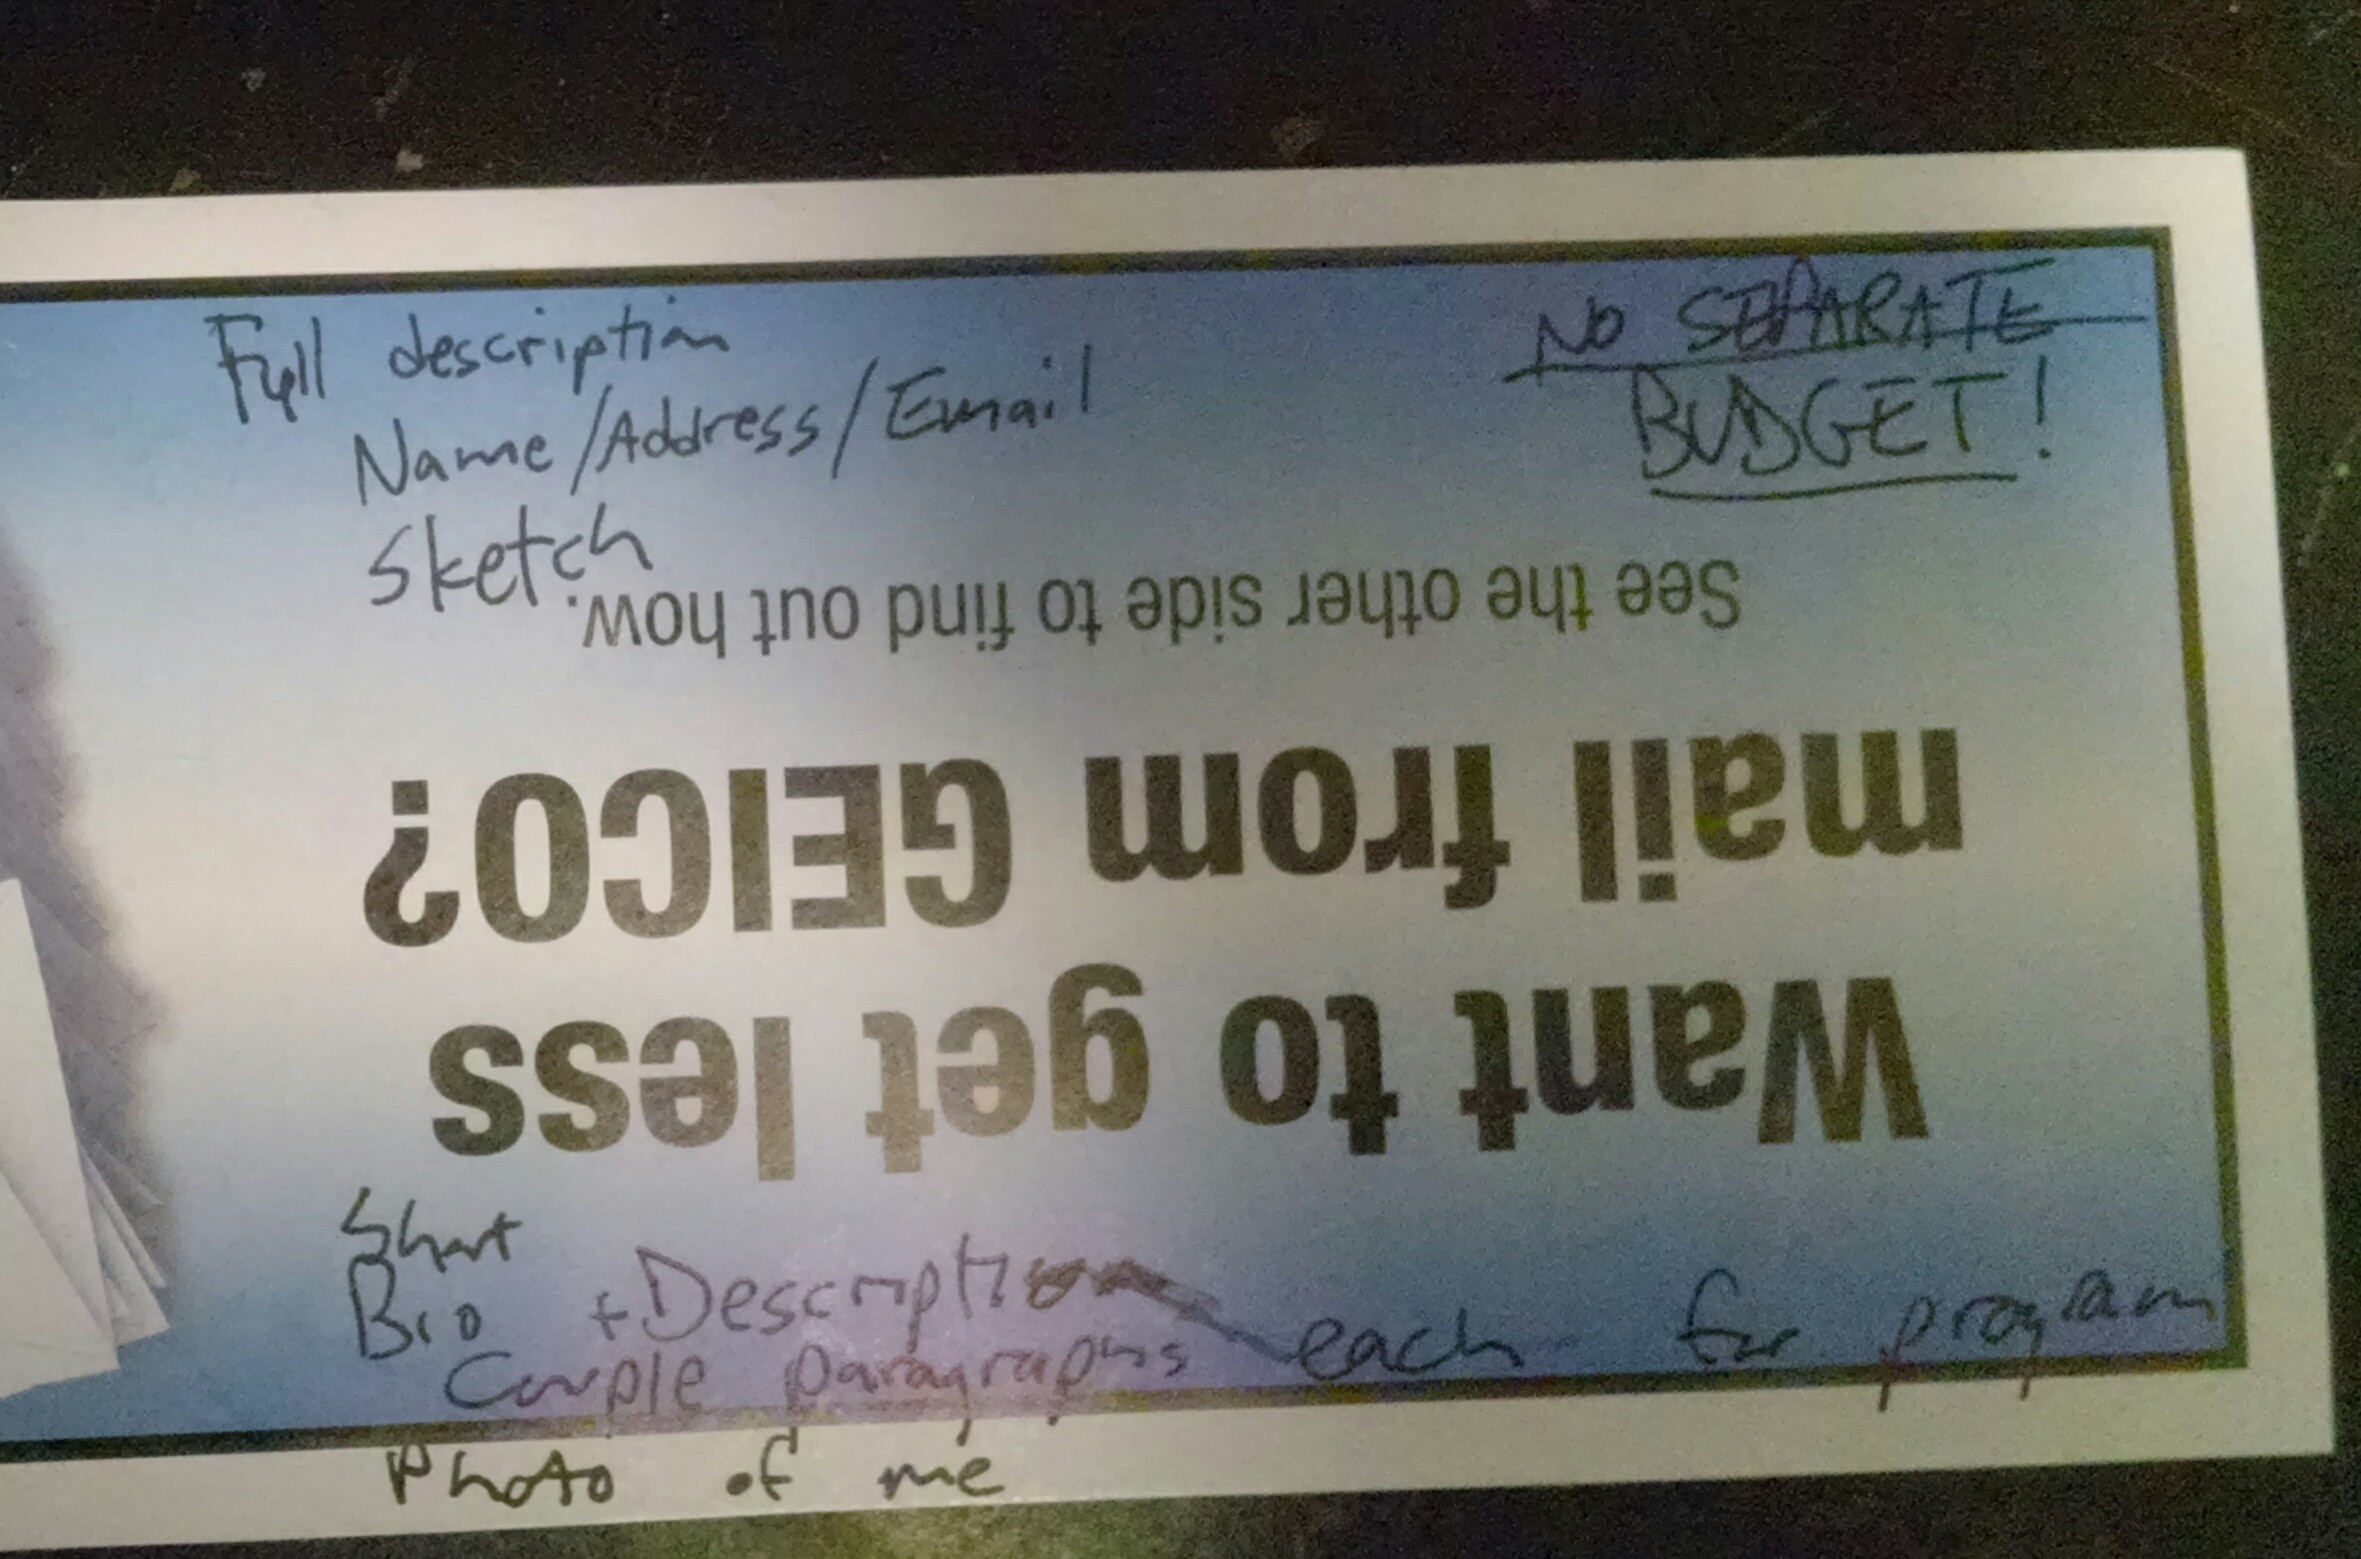 Full description
Name/Address/Email
Sketch
NO SEPARATE
BUDGET!
Want to get less
mail from GEICO?
See the other side to find out how.
Short
Bio + Description
Couple paragraphs each for program
Photo of me